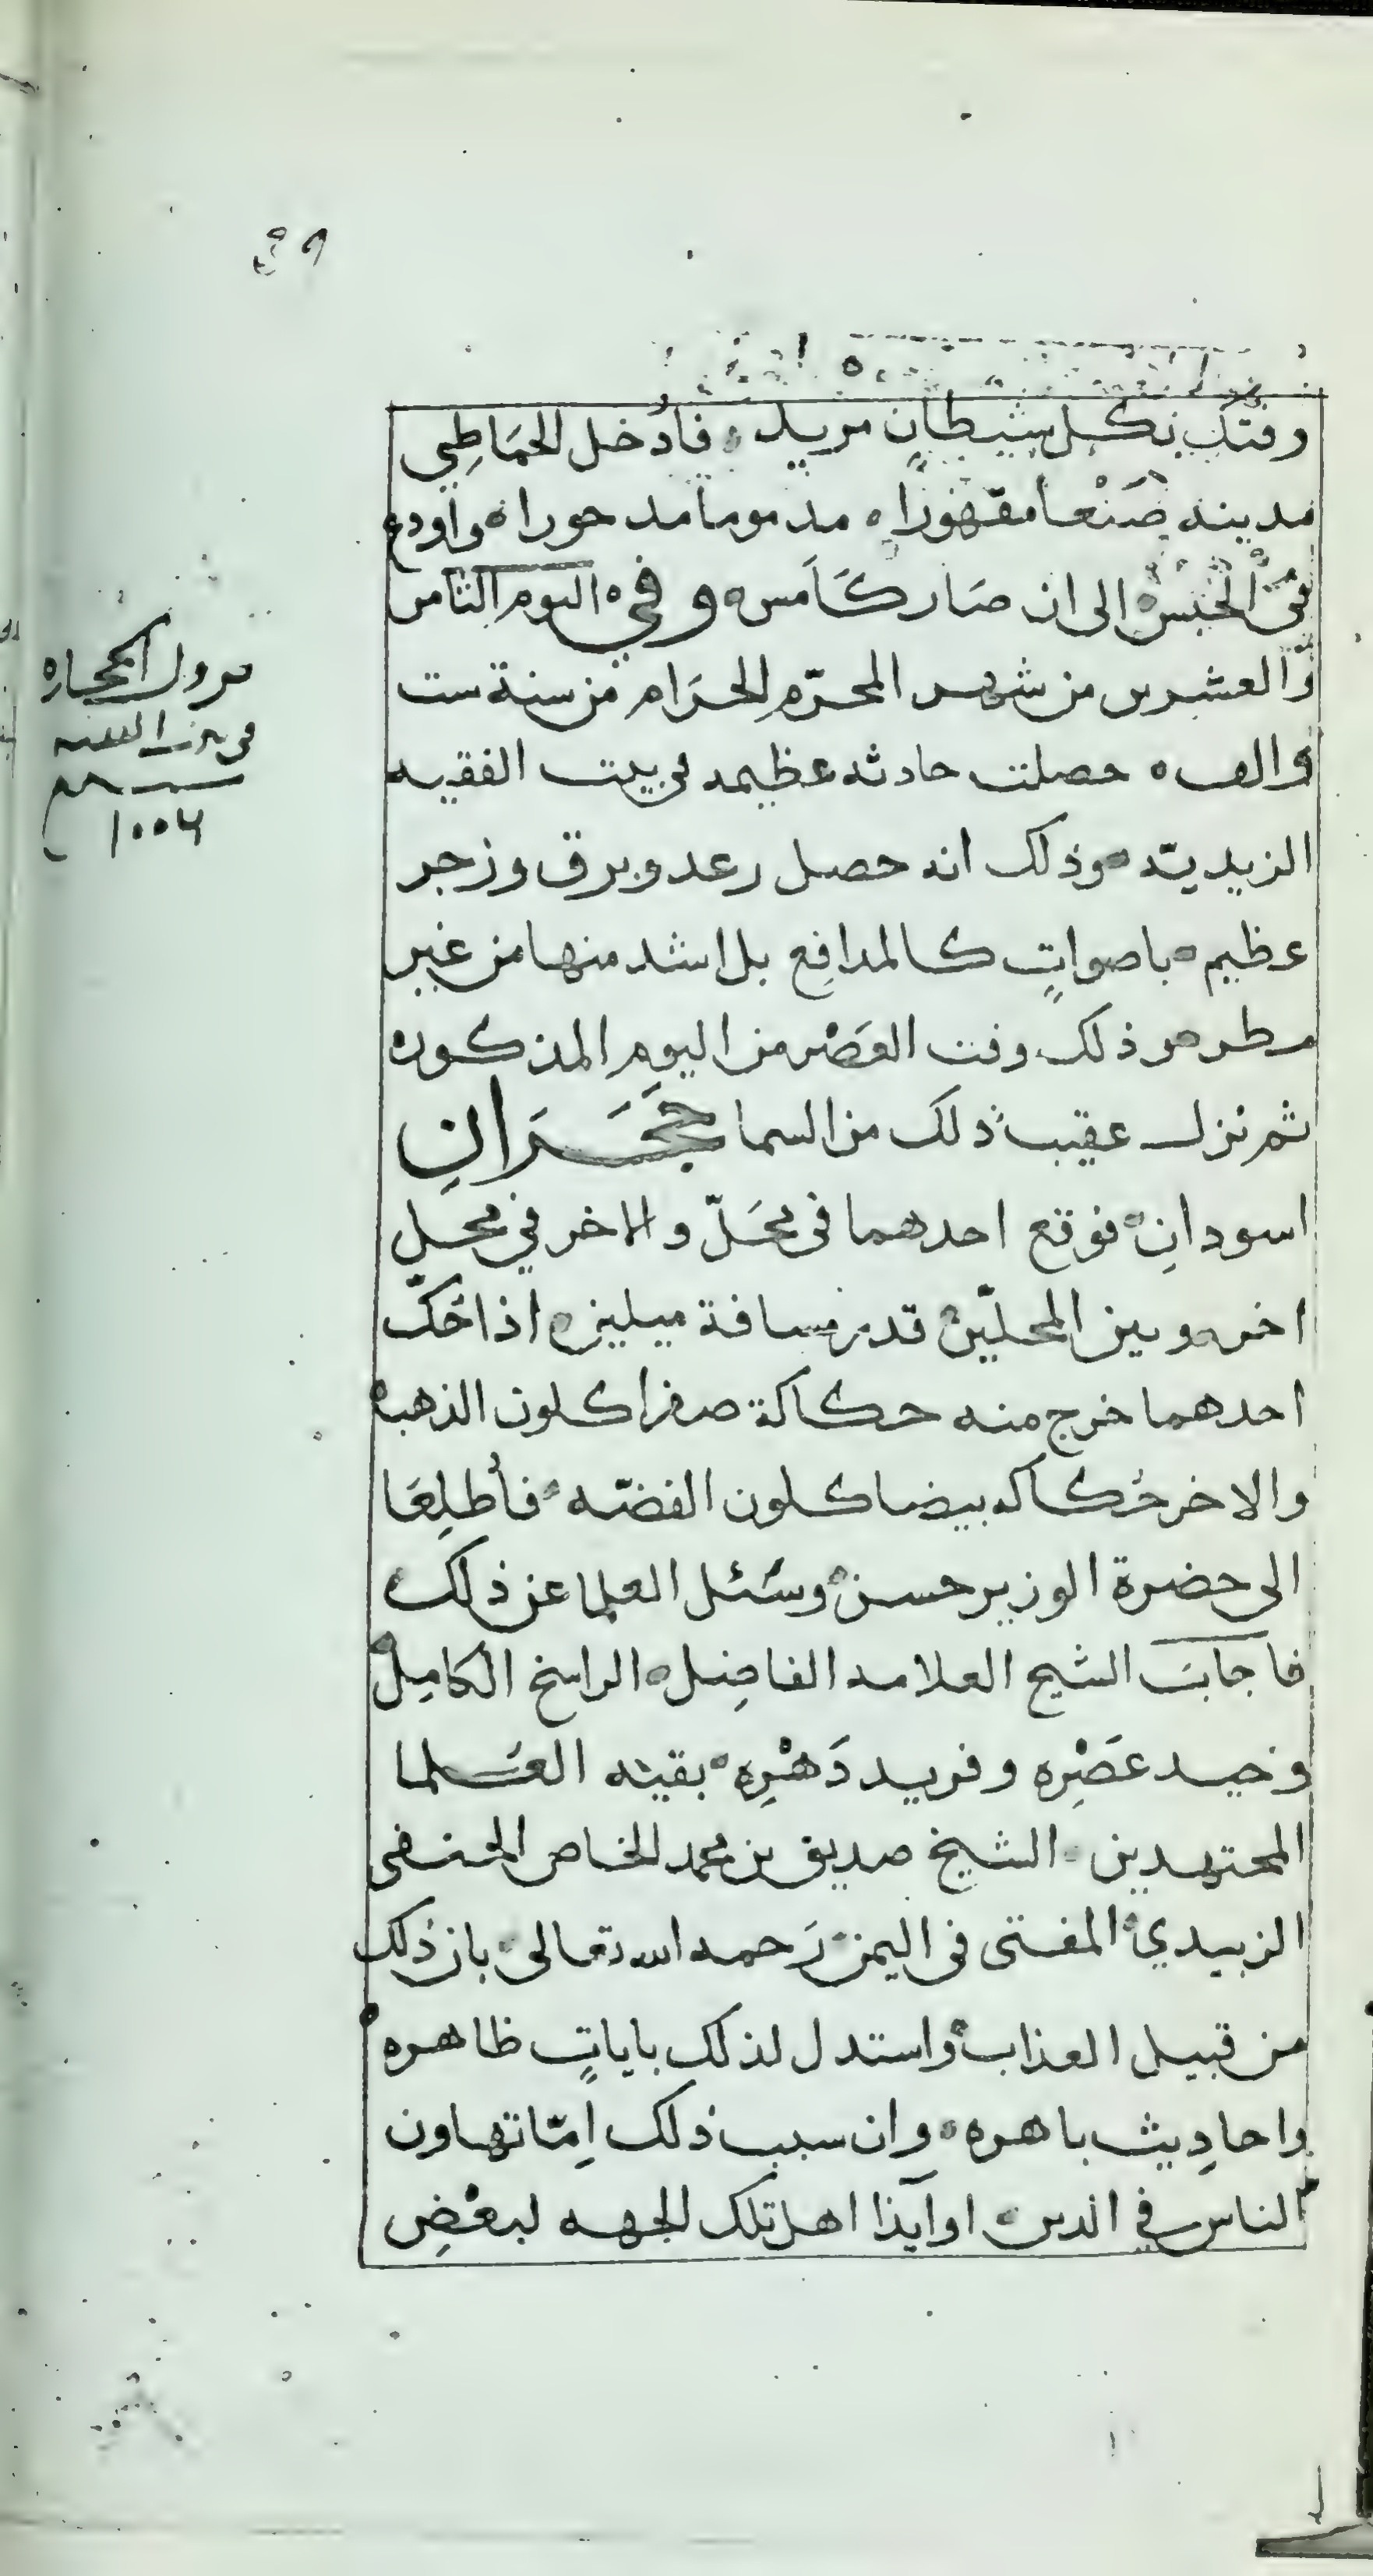 وفتك بكل شيطان مريد ه فأدخل الحمَاطِي
مدينه صَنْعا مقهورا ه مذموما مدحورا ه واودع
في الحَبْس ه الى ان صار كَأمس ه وفي ه اليوم الثامن
والعشرين من شهر المحرّم الحرَام من سنة ست
والف ه حصلت حادثه عظيمه في بيت الفقيه
الزيديّه ه وذلك انه حصل رعد وبرق وزجر
عظيم ه باصواتٍ كالمدافِع بل اشد منها من غير
مطر ه وذلك وقت العَصْر من اليوم المذكور ه
ثم نزل عقيب ذلك من السما حَجَرَانِ
اسودانِ ه فوقع احدهما فى محَلّ والاخر في محل
اخر ه وبين المحلّين ه قدر مسافة ميلين ه اذا حُكّ
احدهما خرج منه حكاكة صفرا كلون الذهب ه
والاخر حُكاكه بيضا كلون الفضّه ه فأُطلِعَا
الى حضرة الوزير حسن ه وسُئل العلما عن ذلك ه
فاجابَ الشيح العلامه الفاضِل ه الراسخ الكامِل ه
وحيد عَصْرِه وفريد دَهْرِه ه بقيه العُلما
المجتهدين ه الشيخ صديق بن محمد الخاص الحنفى
الزبيدي ه المفتى فى اليمن ه رَحمه الله تعالى ه بان ذلك
من قبيل العذاب ه واستدل لذلك باياتٍ ظاهره ه
واحادِيث باهره ه وان سبب ذلك اِمّا تهاون
الناس في الدين ه او آيذا اهل تلك الجهه لبعْضِ
نزول الحجاره
في بيت الفقيه
سنه
١٠٠٦